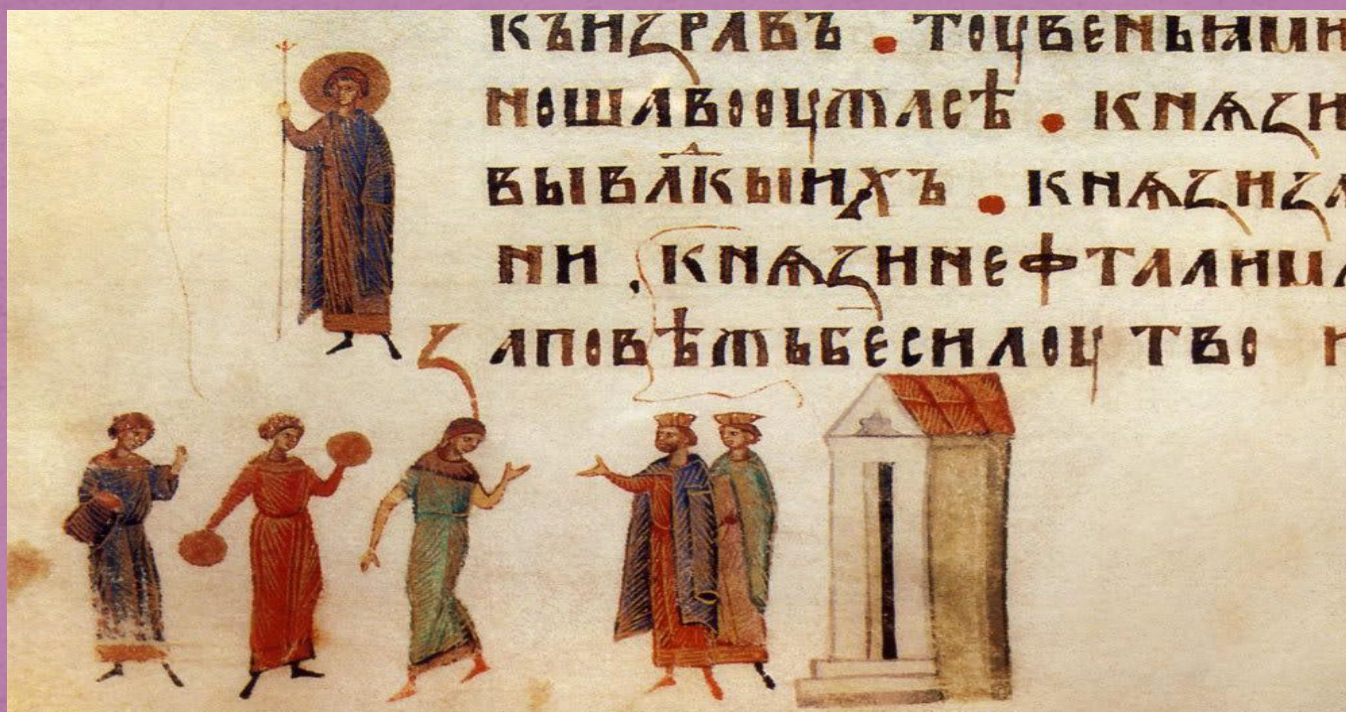 КЪИꙀРАВЪ • ТОУВЕНЬꙖМИ
НОШАВООУЖАСѢ • КНѦꙀИ
ВЫВЛⷣКЫИХЪ • КНѦꙀИꙀА
НИ . КНѦꙀИНЕФТАЛИМЛ
ꙀАПОВѢЖЬБЕСИЛОУ ТВО